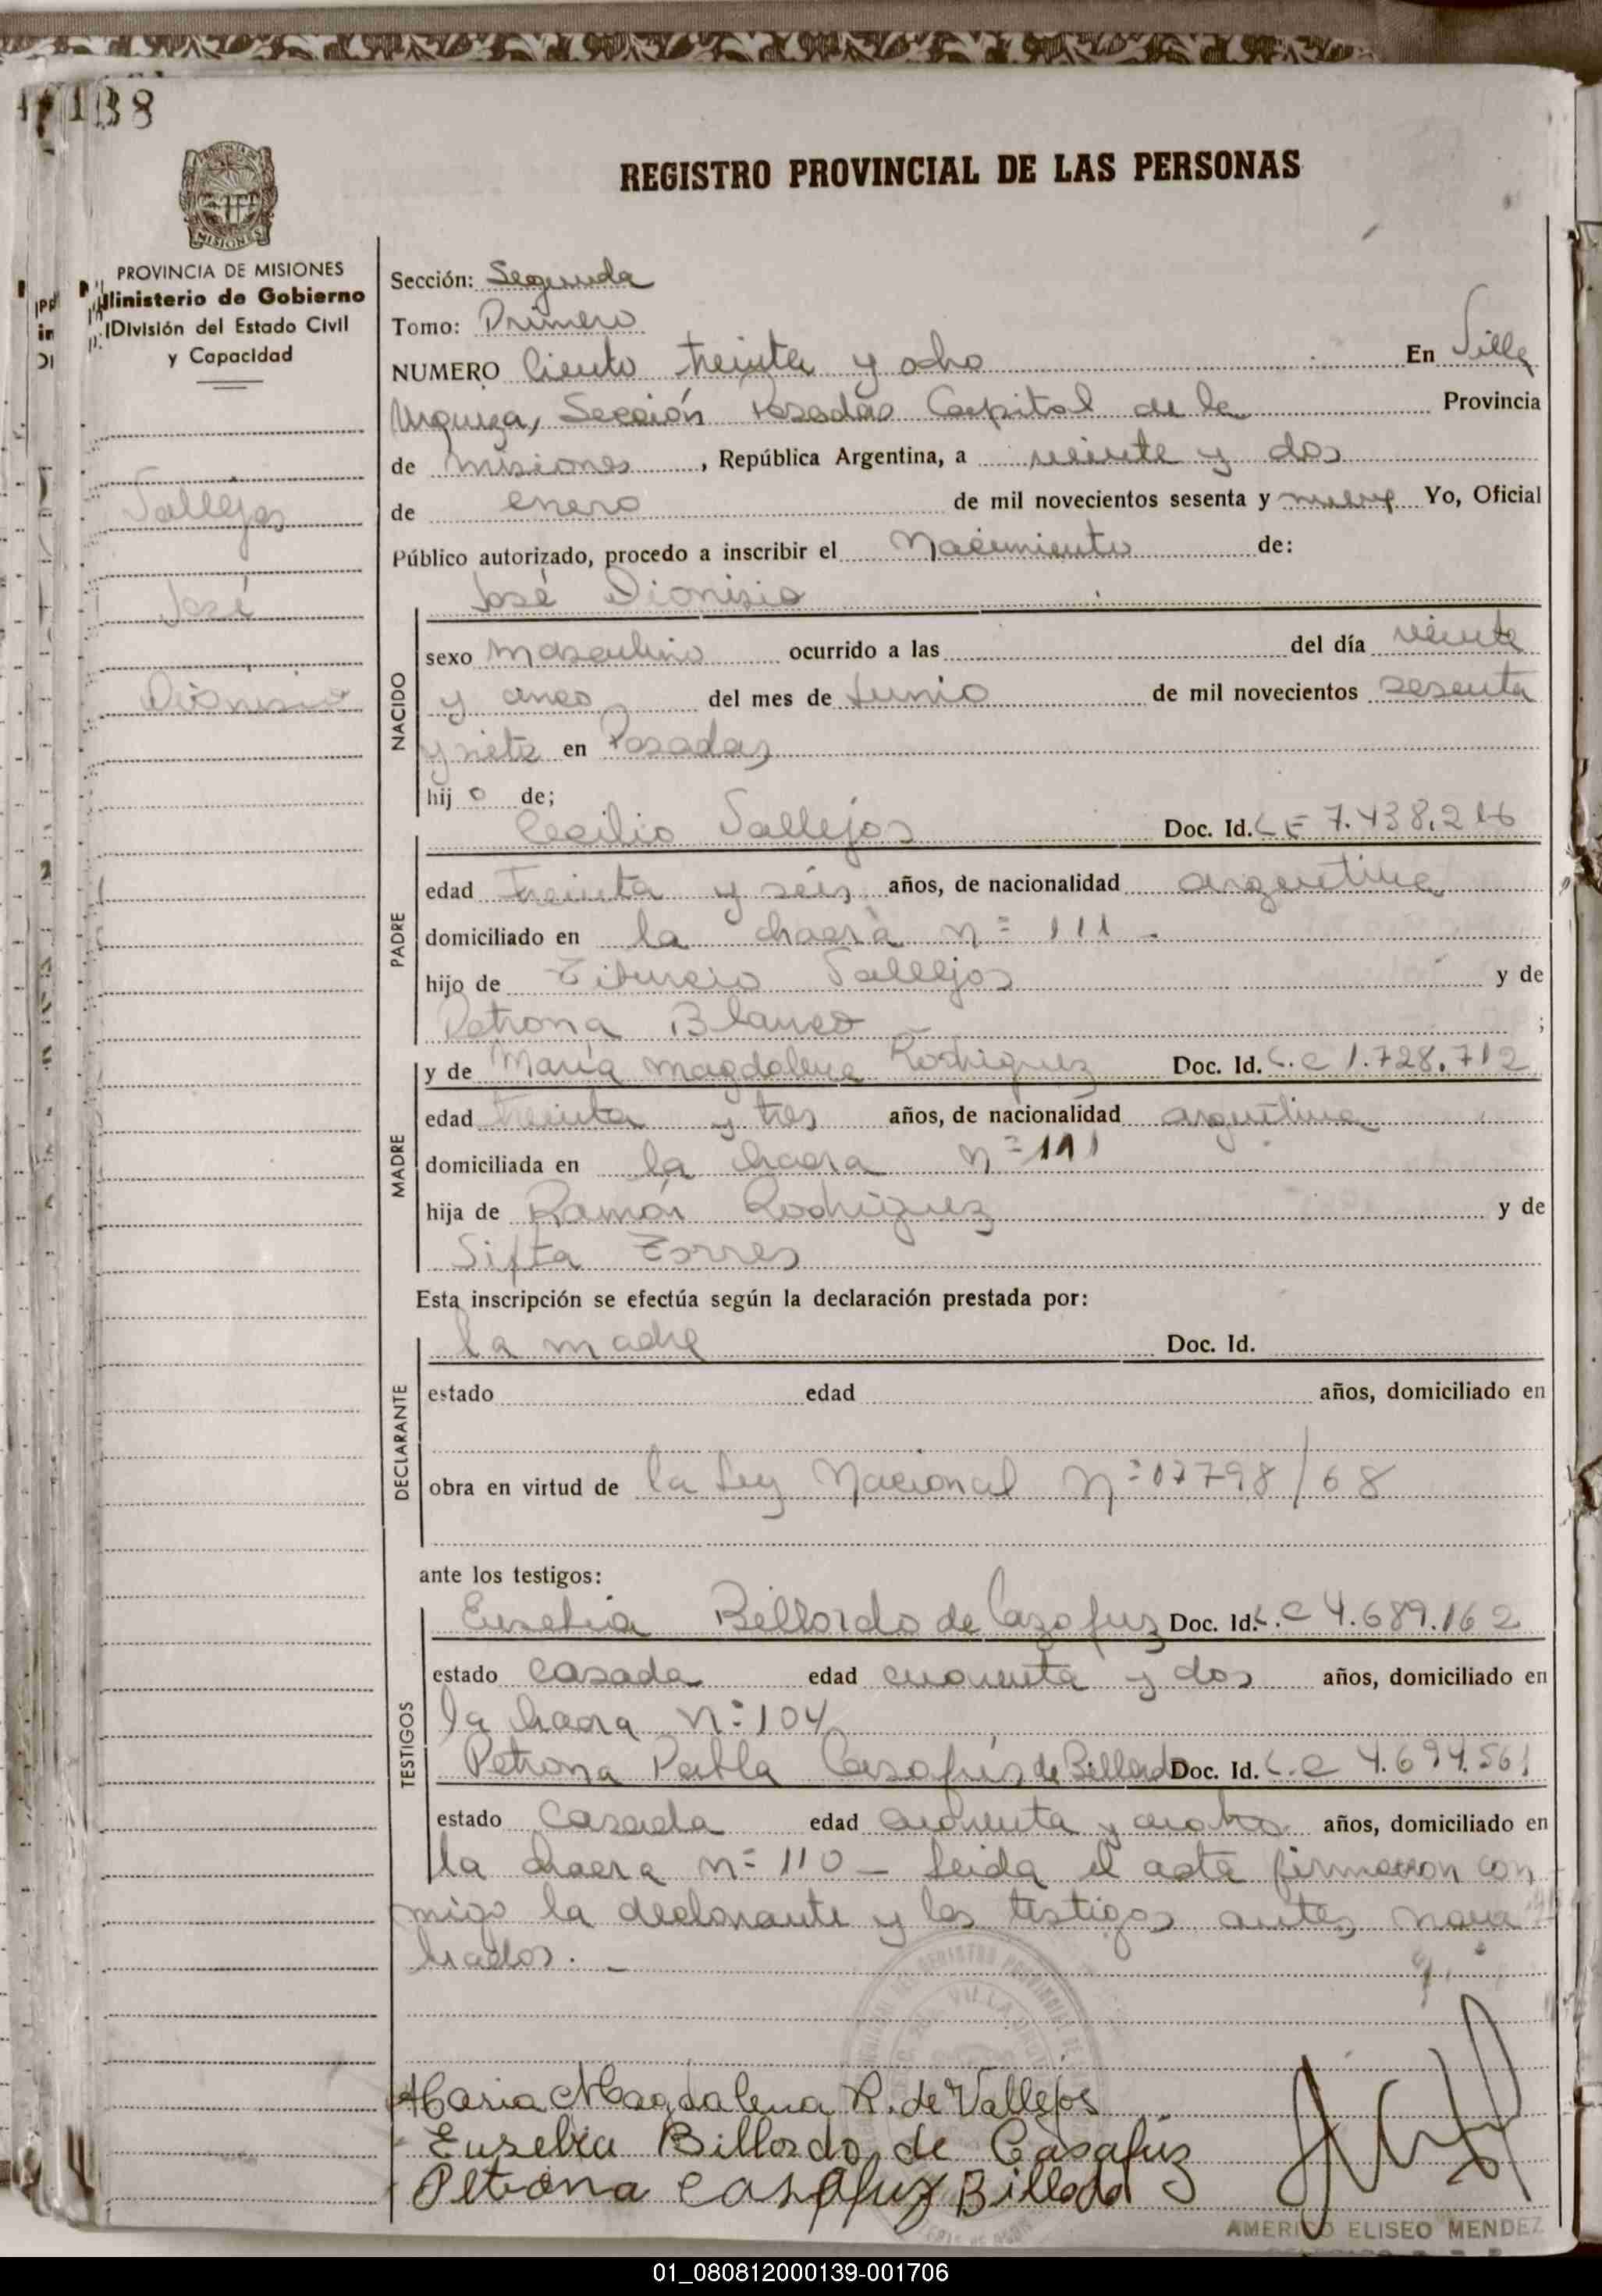 138
REGISTRO PROVINCIAL DE LAS PERSONAS
PROVINCIA DE MISIONES
Ministerio de Gobierno
División del Estado Civil
y Capacidad
Vallejos
José
Dionisio
Sección: Segunda
Tomo: Primero
NUMERO Ciento treinta y ocho En Villa
Urquiza, Sección Posadas Capital de la Provincia
de Misiones, República Argentina, a veinte y dos
de enero de mil novecientos sesenta y nueve Yo, Oficial
Público autorizado, procedo a inscribir el Nacimiento de:
José Dionisio
NACIDO
sexo masculino ocurrido a las del día veinte
y cinco del mes de Junio de mil novecientos sesenta
y siete en Posadas
hijo de;
PADRE
Cecilio Vallejos Doc. Id. L E 7.438.216
edad treinta y seis años, de nacionalidad argentina
domiciliado en la chacra nº 111 -
hijo de Tiburcio Vallejos y de
Petrona Blanco ;
MADRE
y de María Magdalena Rodriguez Doc. Id. L.C 1.728.712
edad treinta y tres años, de nacionalidad argentina
domiciliada en la chacra nº 111
hija de Ramón Rodriguez y de
Sixta Torres
Esta inscripción se efectúa según la declaración prestada por:
DECLARANTE
la madre Doc. Id.
estado edad años, domiciliado en
obra en virtud de la Ley Nacional Nº 17798/68
ante los testigos:
TESTIGOS
Eusebia Billordo de Cazafuz Doc. Id. L.C 4.689.162
estado casada edad cuarenta y dos años, domiciliado en
la chacra nº 104
Petrona Pabla Casafús de Billordo Doc. Id. L.C 4.694.561
estado Casada edad cuarenta y cuatro años, domiciliado en
la chacra nº 110 — Leida el acta firmaron con
migo la declarante y los testigos antes nom
brados. —
VILLA
Maria Magdalena R. de Vallejos
Eusebia Billordo de Casafús
Petrona Casafuz Billodo
AMERICO ELISEO MENDEZ
01_080812000139-001706